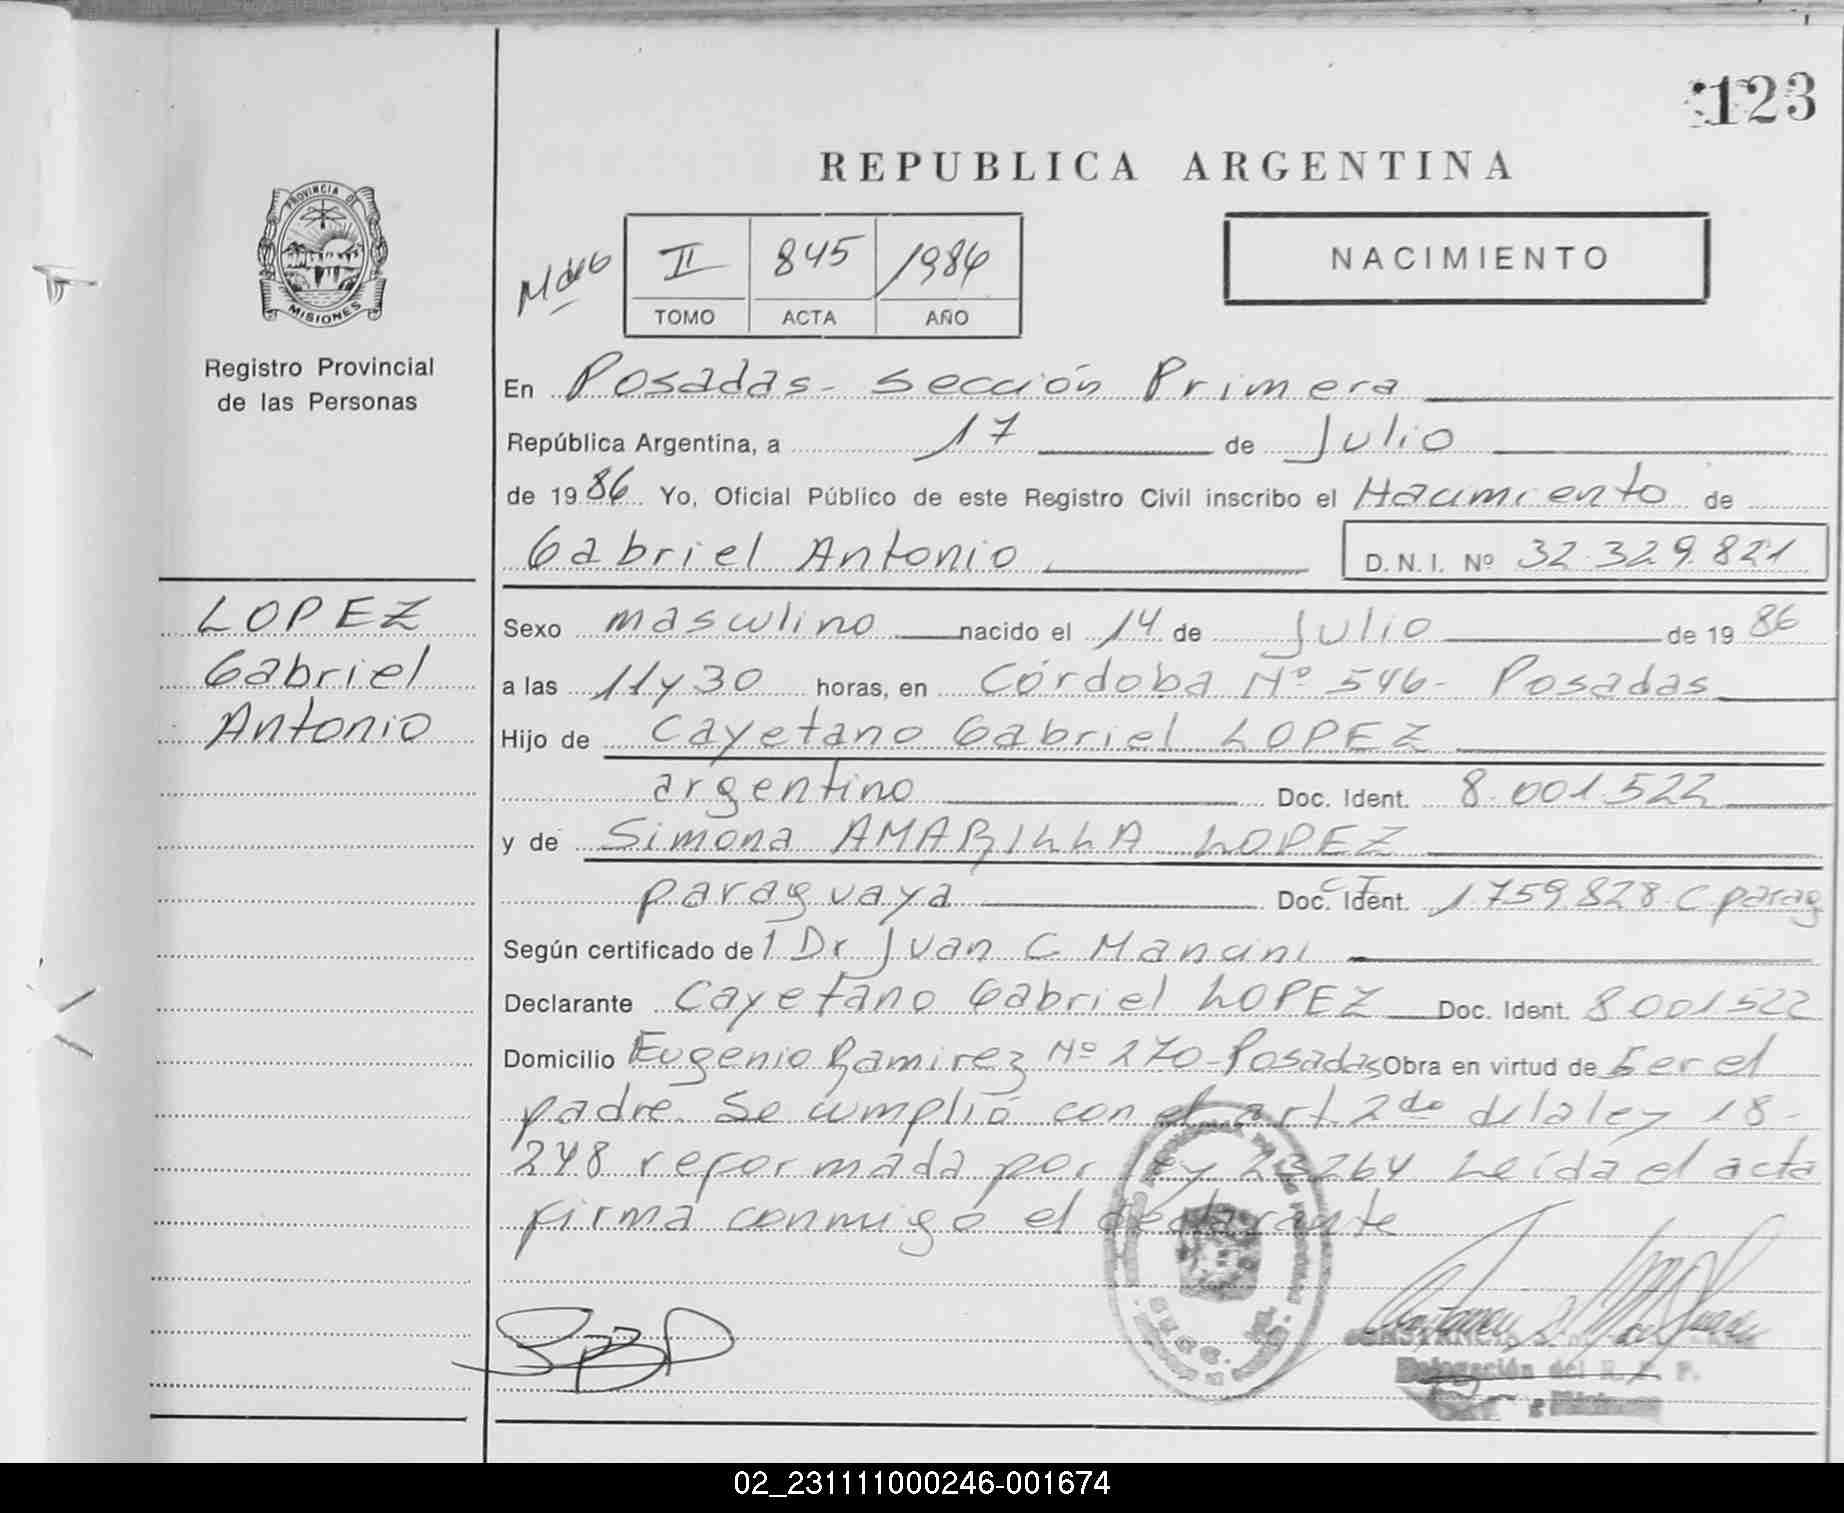 123
REPUBLICA ARGENTINA
PROVINCIA DE
MISIONES
II 845 1986
TOMO ACTA AÑO
NACIMIENTO
Registro Provincial
de las Personas
LOPEZ
Gabriel
Antonio
En Posadas - Sección Primera
República Argentina, a 17 de Julio
de 1986 Yo, Oficial Público de este Registro Civil inscribo el Nacimiento de
Gabriel Antonio D.N.I. Nº 32.329.821
Sexo masculino nacido el 14 de Julio de 1986
a las 11 y 30 horas, en Córdoba Nº 546 - Posadas
Hijo de Cayetano Gabriel LOPEZ
argentino Doc. Ident. 8.001.522
y de Simona AMARILLA LOPEZ
paraguaya Doc. Ident. CI 1.759.828. C parag
Según certificado de l Dr Juan C Mancini
Declarante Cayetano Gabriel LOPEZ Doc. Ident. 8001522
Domicilio Eugenio Ramirez Nº 270 - Posadas Obra en virtud de Ser el
padre. Se cumplió con el art. 2do de la ley 18-
248 reformada por ley 23264 Leída el acta
firma conmigo el declarante
Delegación del R. P. P.
02_231111000246-001674